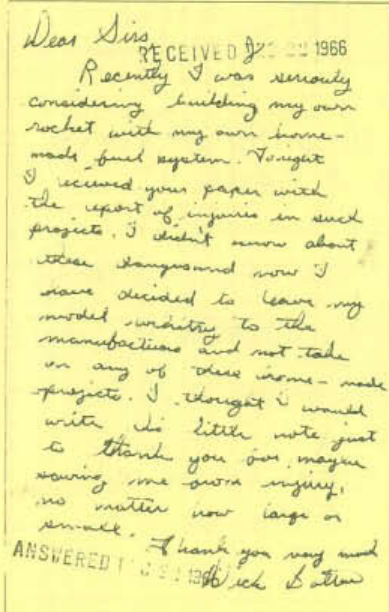 Dear Sirs,
RECEIVED 1966
Recently I was seriously
considering building my own
rocket with my own home-
made fuel system. Tonight
I recieved your paper with
the report of injuries in such
projects. I didn't know about
these dangers and now I
have decided to leave my
model rocketry to the
manufacturers and not take
on any of these home-made
projects. I thought I would
write this little note just
to thank you for maybe
saving me from injury,
no matter how large or
small. Thank you very much
ANSWERED